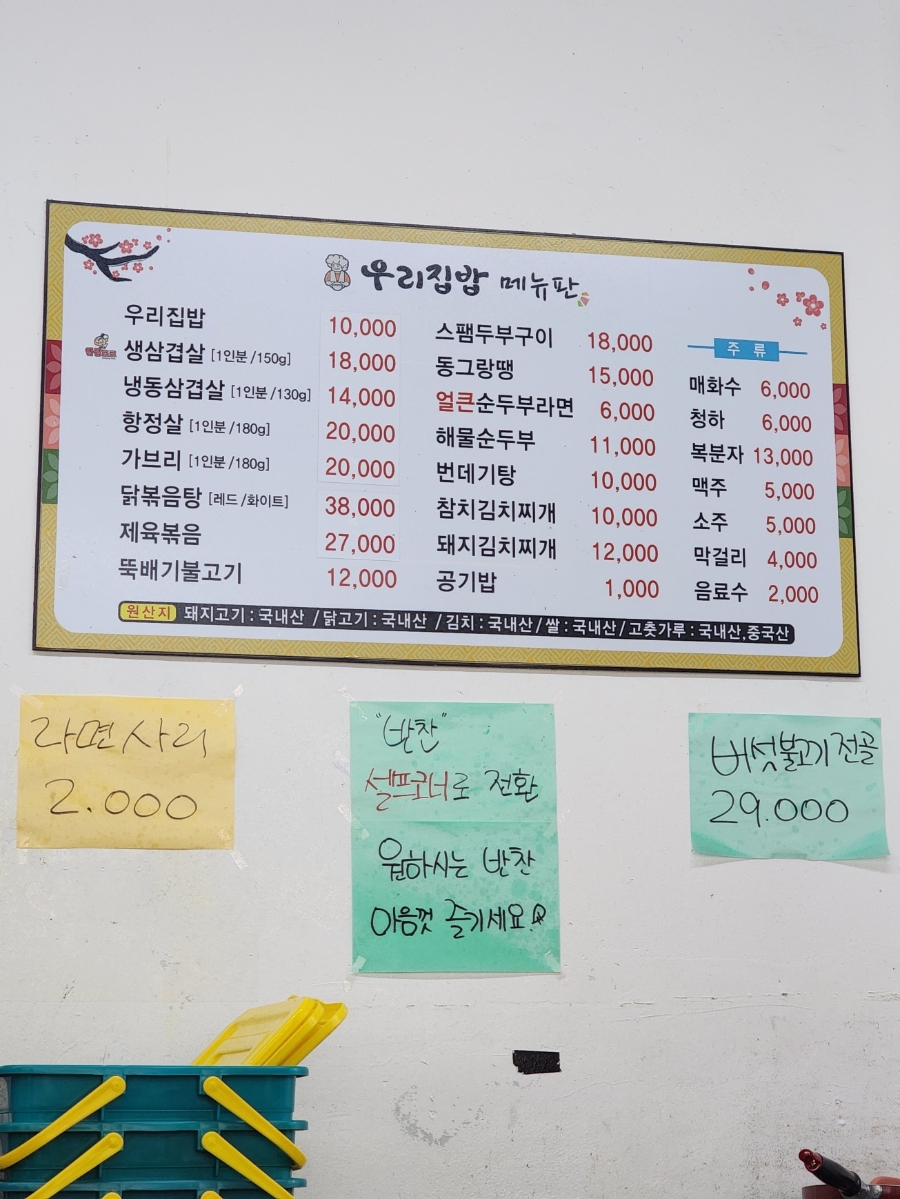 우리집밥 메뉴판
우리집밥 10,000
생삼겹살 [1인분/150g] 18,000
냉동삼겹살 [1인분/130g] 14,000
항정살 [1인분/180g] 20,000
가브리 [1인분/180g] 20,000
닭볶음탕 [레드/화이트] 38,000
제육볶음 27,000
뚝배기불고기 12,000
스팸두부구이 18,000
동그랑땡 15,000
얼큰순두부라면 6,000
해물순두부 11,000
번데기탕 10,000
참치김치찌개 10,000
돼지김치찌개 12,000
공기밥 1,000
주 류
매화수 6,000
청하 6,000
복분자 13,000
맥주 5,000
소주 5,000
막걸리 4,000
음료수 2,000
원산지 돼지고기 : 국내산 / 닭고기 : 국내산 / 김치 : 국내산 / 쌀 : 국내산 / 고춧가루 : 국내산,중국산
라면사리
2.000
"반찬"
셀프코너로 전환
원하시는 반찬
마음껏 즐기세요
버섯불고기전골
29.000